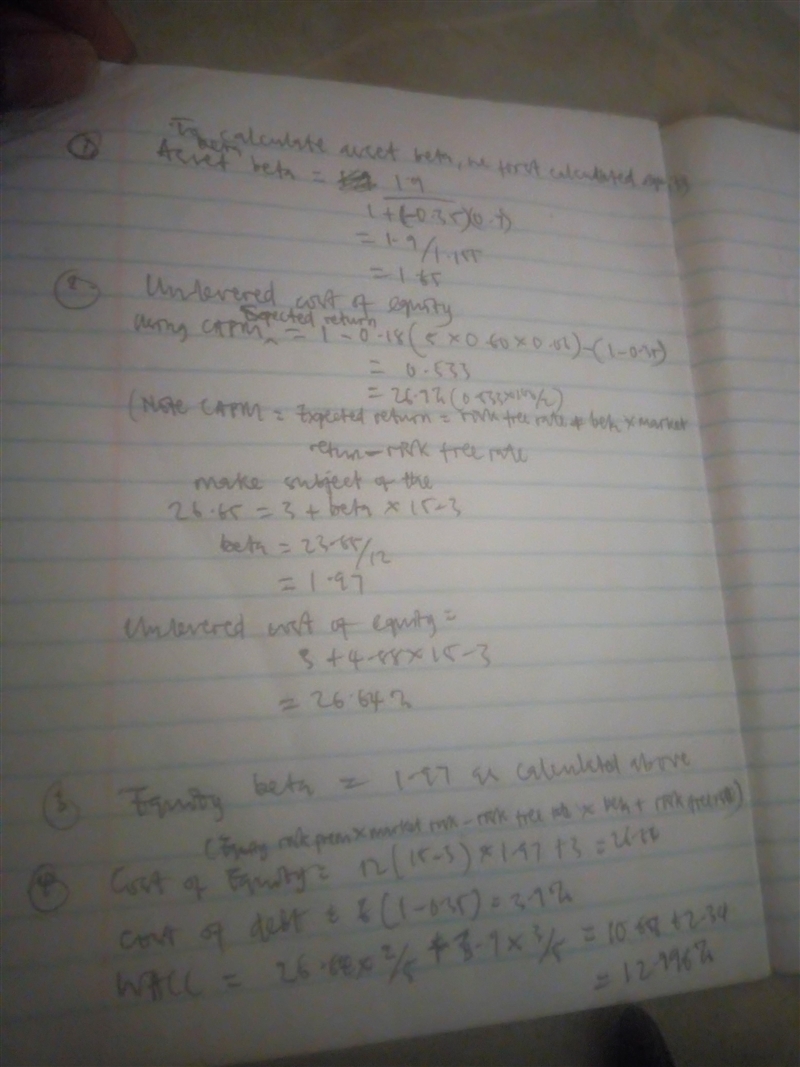 ① To calculate asset beta, we first calculated
beta
Asset beta = 1.9
1 + (-0.35)(0.7)
= 1.9/1.155
= 1.65
② Unlevered cost of equity
Expected return
using CAPM = 1 - 0.18(5 × 0.60 × 0.02) - (1-0.35)
= 0.533
= 26.7% (0.533×100/2)
(Note CAPM = Expected return = risk free rate + beta × market
return - risk free rate
make subject of the
26.65 = 3 + beta × 15-3
beta = 23.65/12
= 1.97
Unlevered cost of equity =
3 + 4.88 × 15-3
= 26.64%
③ Equity beta = 1.97 as calculated above
(Equity risk prem × market risk - risk free × beta + risk free)
④ Cost of Equity = 12(15-3) × 1.97 + 3 =
Cost of debt = 6(1-0.35) = 3.9%
WACC = 26.68 × 2/5 + 3.9 × 3/5 = 10.68 + 2.34
= 12.996%